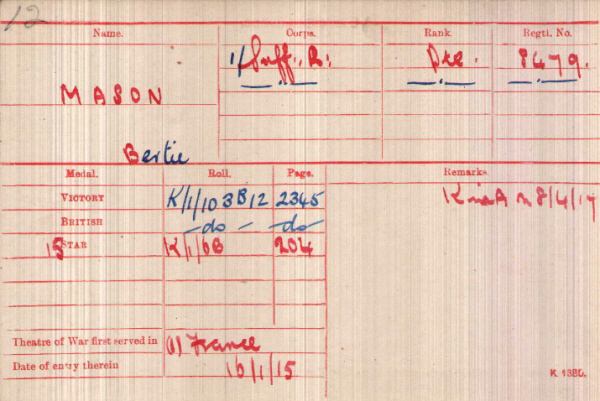 12
Name. Corps. Rank. Regtl. No.
1/Suff. R. Pte. 8479.
MASON
Bertie
Medal. Roll. Page. Remarks
VICTORY K/1/103B12 2345 K in A 8/4/17
BRITISH -do- do
15 STAR K/1/6B 204
Theatre of War first served in (1) France
Date of entry therein 16/1/15
K 1380.